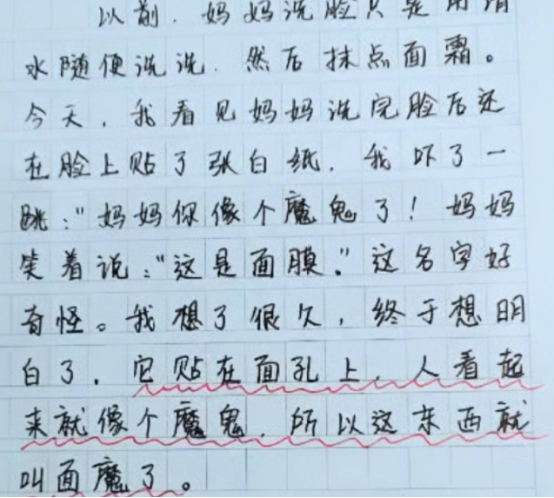 以前，妈妈洗脸只是用清
水随便洗洗，然后抹点面霜。
今天，我看见妈妈洗完脸后还
在脸上贴了张白纸，我吓了一
跳："妈妈你像个魔鬼了！妈妈
笑着说："这是面膜。"这名字好
奇怪。我想了很久，终于想明
白了，它贴在面孔上，人看起
来就像个魔鬼，所以这东西就
叫面魔了。